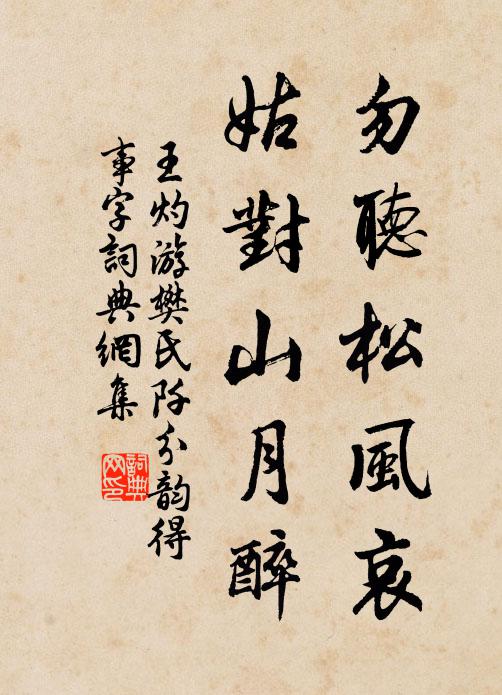 勿聽松風哀
姑對山月醉
王灼游樊氏阡分韵得
事字詞典網集
詞典
网印